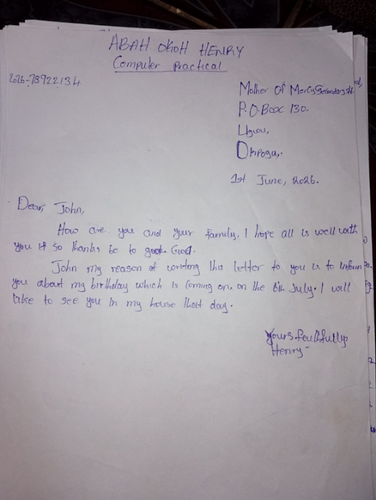 ABAH OKOH HENRY
Computer Practical
2026-78922134
Mother Of Mercy Secondary
P.O.BOX 130.
Ugwu,
Okpoga,.
1st June, 2026.
Dear, John,
How are you and your family, I hope all is well with
you if so thanks be to God.
John my reason of writing this letter to you is to inform
you about my birthday which is coming on on the 6th July. I will
like to see you in my house that day.
Yours faithfully
Henry